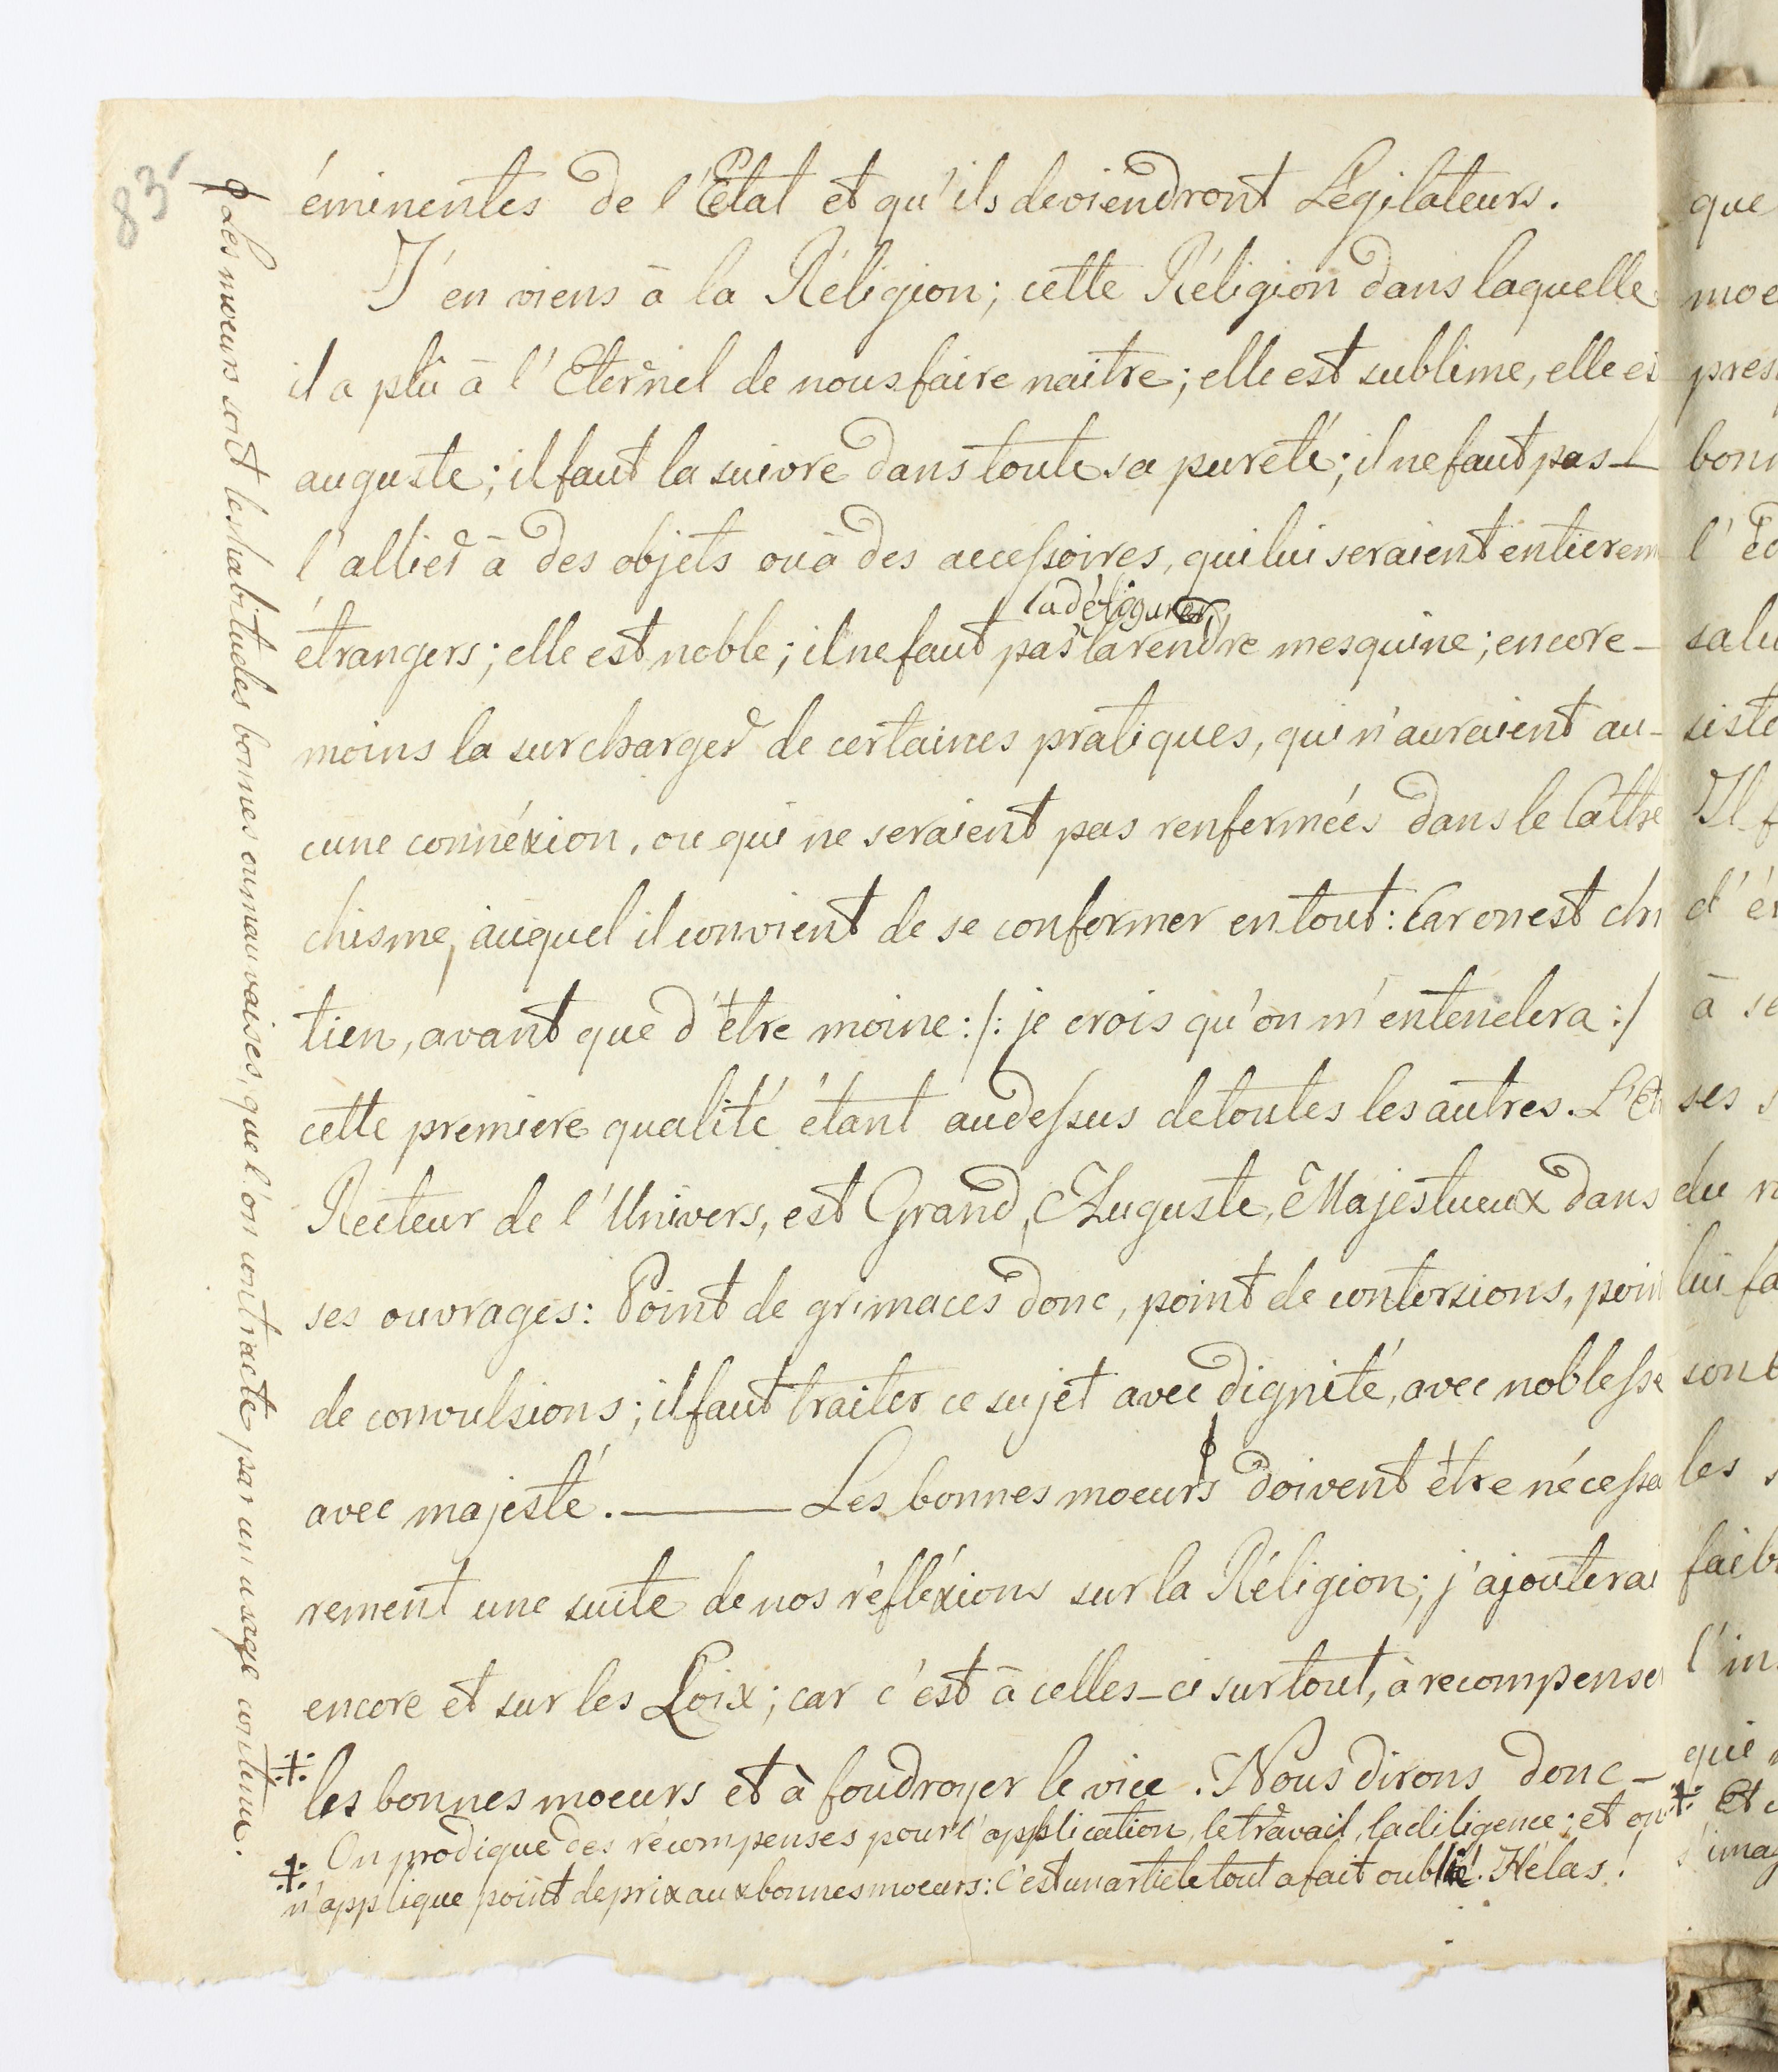 83
éminentes de l'Etat et qu'ils deviendront Légilateurs.
J'en viens à la Réligion; cette Réligion dans laquelle
il a plû à l'Eternel de nous faire naitre; elle est sublime, elle es
auguste; il faut la suivre dans toute sa pureté; il ne faut pas
l'allier à des objets ou à des accessoires, qui lui seraient entierem
la défigurer,
étrangers; elle est noble; il ne faut pas la rendre mesquine; encore
moins la surcharger de certaines pratiques, qui n'auraient au-
cune connéxion, ou qui ne seraient pas renfermées dans le Cathe
chisme, auquel il convient de se conformer en tout: Car on est chr
tien, avant que d'être moine :/: je crois qu'on m'entendera :/
cette premiere qualité étant audessus de toutes les autres. L'Et
Recteur de l'Univers, est Grand, Auguste, Majestueux dans
ses ouvrages: Point de grimaces donc, point de contorsions, poin
de convulsions; il faut traiter ce sujet avec dignité, avec noblesse
avec majesté. — Les bonnes moeurs doivent être nécessa
rement une suite de nos réfléxions sur la Réligion; j'ajouterai
encore et sur les Loix; car c'est à celles-ci surtout, à recompenser
les bonnes moeurs et à foudroyer le vice. Nous dirons donc
On prodigue des récompenses pour l'application, le travail, la diligence; et on
n'applique point de prix aux bonnes moeurs: c'est un article tout a fait oublié. Hélas!
Les moeurs sont les habitudes bonnes ou mauvaises, que l'on contracte par un usage continu.
que
moe
pres
bonn
l'éd
salu
siste
Il f
d'é
à se
ses s
du
lui fa
sont
les
faib
l'in
qui
Et
s'imag